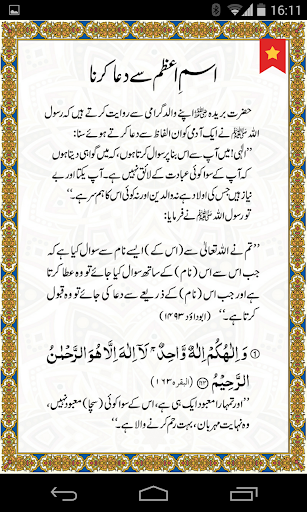 16:11
اسمِ اعظم سے دعا کرنا
حضرت بریدہ ﷺ اپنے والد گرامی سے روایت کرتے ہیں کہ رسول
اللہ ﷺ نے ایک آدمی کو ان الفاظ سے دعا کرتے ہوئے سنا:
’’الٰہی! میں آپ سے اس بنا پر سوال کرتا ہوں، کہ میں گواہی دیتا ہوں
کہ آپ کے سوا کوئی عبادت کے لائق نہیں ہے۔ آپ یکتا ہے
بے نیاز ہیں جس کی اولاد ہے نہ والدین اور نہ کوئی اس کا ہم سر ہے۔‘‘
تو رسول اللہ ﷺ نے فرمایا:
’’تم نے اللہ تعالیٰ سے (اس کے) ایسے نام سے سوال کیا ہے کہ
جب اس سے اس (نام) کے ساتھ سوال کیا جائے تو وہ عطا کرتا
ہے اور جب اس (نام) کے ذریعے سے دعا کی جائے تو وہ قبول
کرتا ہے۔‘‘ (ابوداؤد ۱۴۹۳)
① وَاِلٰهُكُمْ اِلٰهٌ وَّاحِدٌ ۚ لَآ اِلٰهَ اِلَّا هُوَ الرَّحْمٰنُ
الرَّحِيْمُ ۝۱۶۳ (البقرہ ۱۶۳)
’’اور تمہارا معبود ایک ہی ہے، اس کے سوا کوئی (سچا) معبود نہیں،
وہ نہایت مہربان، بہت رحم کرنے والا ہے۔‘‘